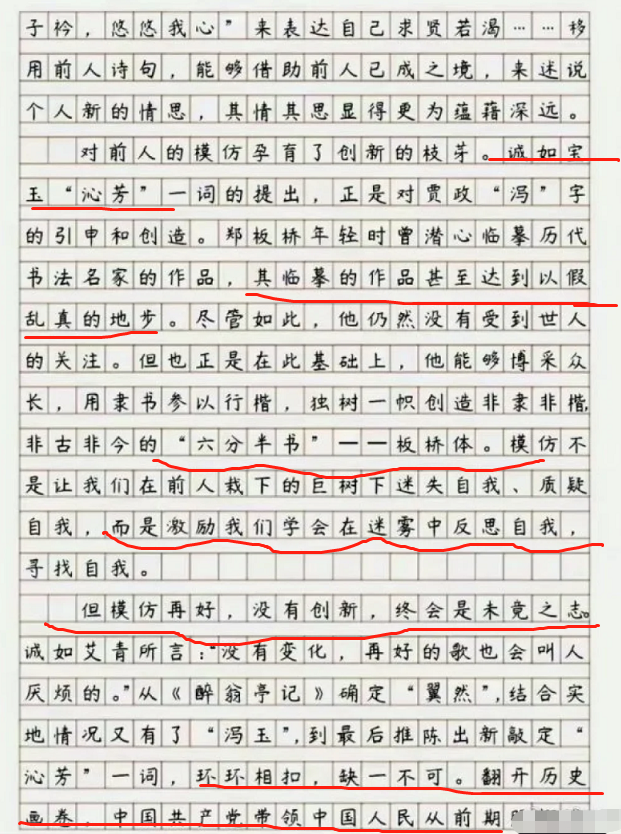 子衿，悠悠我心”来表达自己求贤若渴……移
用前人诗句，能够借助前人已成之境，来述说
个人新的情思，其情其思显得更为蕴藉深远。
对前人的模仿孕育了创新的枝芽。诚如宝
玉“沁芳”一词的提出，正是对贾政“泻”字
的引申和创造。郑板桥年轻时曾潜心临摹历代
书法名家的作品，其临摹的作品甚至达到以假
乱真的地步。尽管如此，他仍然没有受到世人
的关注。但也正是在此基础上，他能够博采众
长，用隶书参以行楷，独树一帜创造非隶非楷，
非古非今的“六分半书”——板桥体。模仿不
是让我们在前人栽下的巨树下迷失自我、质疑
自我，而是激励我们学会在迷雾中反思自我，
寻找自我。
但模仿再好，没有创新，终会是未竟之志。
诚如艾青所言：“没有变化，再好的歌也会叫人
厌烦的。”从《醉翁亭记》确定“翼然”，结合实
地情况又有了“泻玉”，到最后推陈出新敲定“
沁芳”一词，环环相扣，缺一不可。翻开历史
画卷，中国共产党带领中国人民从前期